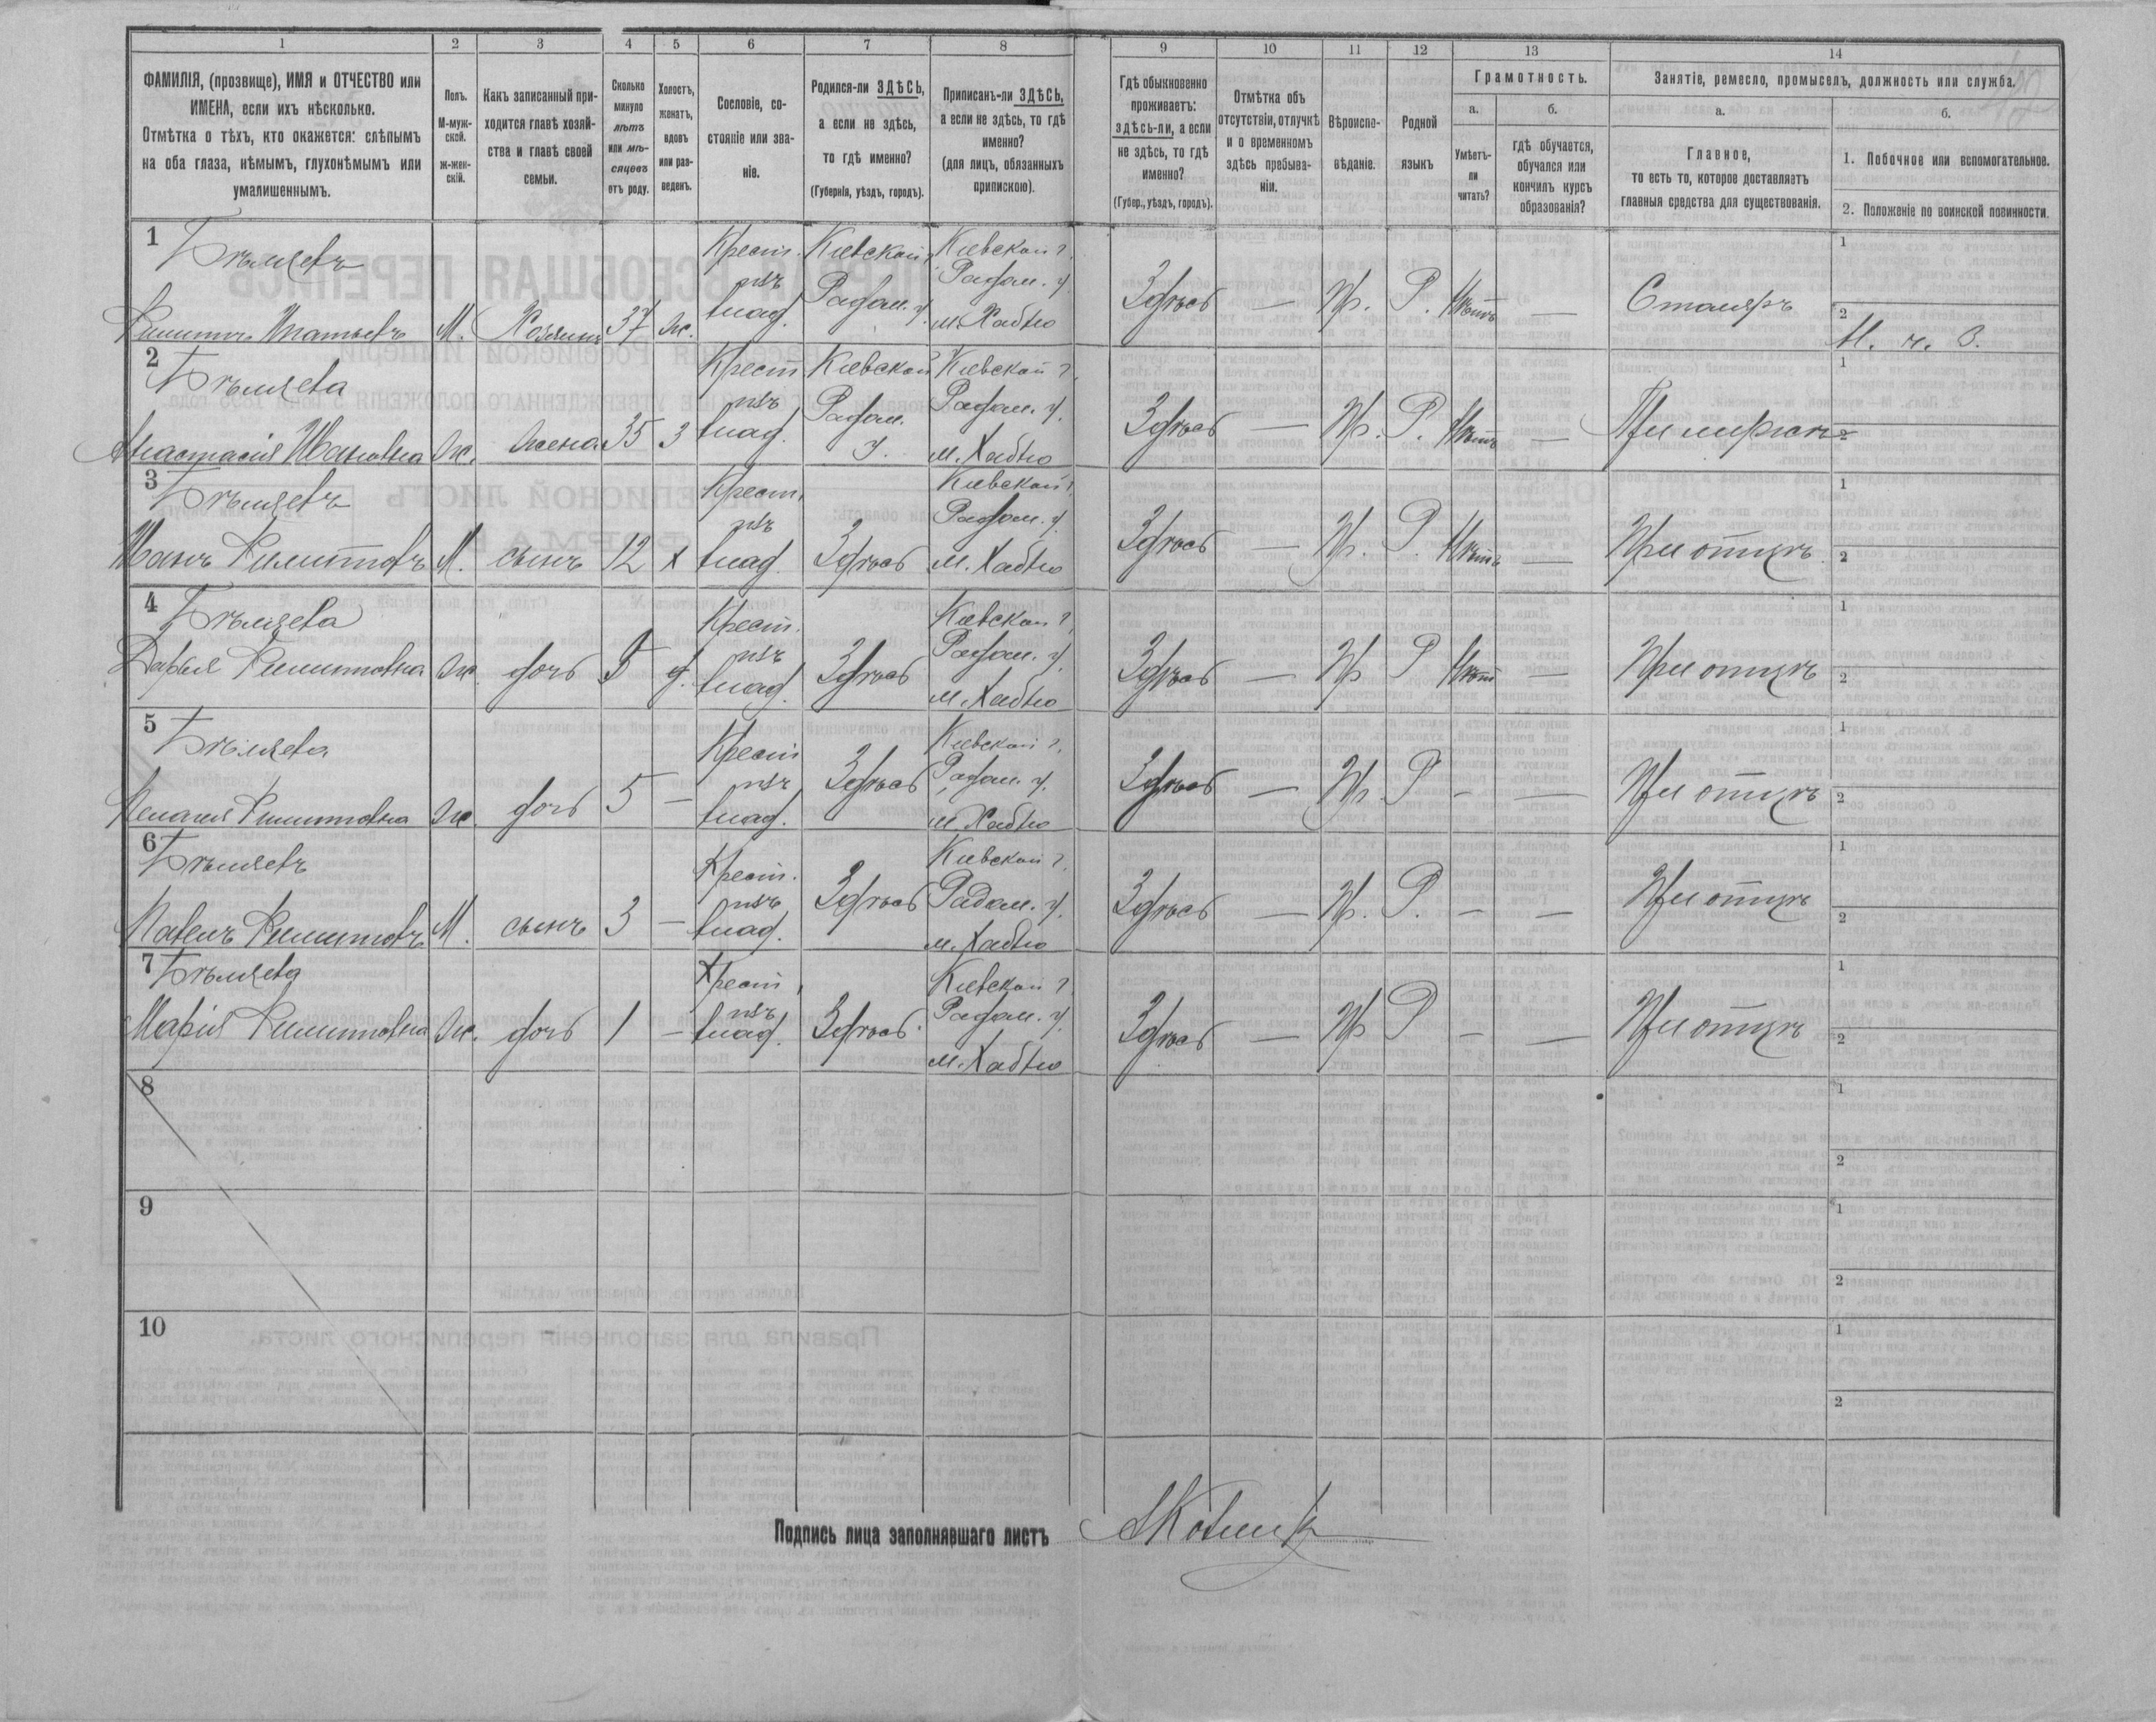 1 2 3 4 5 6 7 8 9 10 11 12 13 14
ФАМИЛІЯ, (прозвище), ИМЯ и ОТЧЕСТВО или
ИМЕНА, если ихъ нѣсколько.
Отмѣтка о тѣхъ, кто окажется: слѣпымъ
на оба глаза, нѣмымъ, глухонѣмымъ или
умалишеннымъ.
Полъ.
М-муж-
ской.
ж-жен-
скій.
Какъ записанный при-
ходится главѣ хозяй-
ства и главѣ своей
семьи.
Сколько
минуло
лѣтъ
или мѣ-
сяцевъ
отъ роду.
Холостъ,
женатъ,
вдовъ
или раз-
веденъ.
Сословіе, со-
стояніе или зва-
ніе.
Родился-ли ЗДѢСЬ,
а если не здѣсь,
то гдѣ именно?
(Губернія, уѣздъ, городъ).
Приписанъ-ли ЗДѢСЬ,
а если не здѣсь, то гдѣ
именно?
(для лицъ, обязанныхъ
припискою).
Гдѣ обыкновенно
проживаетъ:
здѣсь-ли, а если
не здѣсь, то гдѣ
именно?
(Губер., уѣздъ, городъ).
Отмѣтка объ
отсутствіи, отлучкѣ
и о временномъ
здѣсь пребыва-
ніи.
Вѣроиспо-
вѣданіе.
Родной
языкъ
Грамотность.
а.
Умѣетъ-
ли
читать?
б.
гдѣ обучается,
обучался или
кончилъ курсъ
образованія?
Занятіе, ремесло, промыселъ, должность или служба.
а.
Главное,
то есть то, которое доставляетъ
главныя средства для существованія.
б.
1. Побочное или вспомогательное.
2. Положеніе по воинской повинности.
1 Бѣляевъ
Филиппъ Игнатьевъ М. Хозяинъ 37 ж.
Крест.
изъ
влад.
Кіевской г.
Радом. у.
Кіевской г.
Радом. у.
м. Хабно
Здѣсь — Пр. Р. Нѣтъ — Столяръ
1
2 М. ч. В.
2 Бѣляева
Анастасія Ивановна Ж. жена 35 З
Крест.
изъ
влад.
Кіевской
Радом.
у.
Кіевской г.
Радом. у.
м. Хабно
Здѣсь — Пр. Р. Нѣтъ — При мужѣ
1
2
3 Бѣляевъ
Иванъ Филипповъ М. сынъ 12 х
Крест.
изъ
влад.
Здѣсь
Кіевской г.
Радом. у.
м. Хабно
Здѣсь — Пр. Р. Нѣтъ — При отцѣ
1
2
4 Бѣляева
Дарья Филипповна Ж. дочь д.
Крест.
изъ
влад.
Здѣсь
Кіевской г.
Радом. у.
м. Хабно
Здѣсь — Пр Р Нѣт — При отцѣ
1
2
5 Бѣляева
Пелагея Филипповна Ж. дочь 5 —
Крест
изъ
влад.
Здѣсь
Кіевской г.
Радом. у.
м. Хабно
Здѣсь — Пр. Р — — При отцѣ
1
2
6 Бѣляевъ
Павелъ Филипповъ М. сынъ 3 —
Крест.
изъ
влад.
Здѣсь
Кіевской г.
Радом. у.
м. Хабно
Здѣсь — Пр. Р. — — При отцѣ
1
2
7 Бѣляева
Марія Филипповна Ж. дочь 1 —
Крест.
изъ
влад.
Здѣсь
Кіевской г.
Радом. у.
м. Хабно
Здѣсь — Пр Р — — При отцѣ
1
2
8
1
2
9
1
2
10
1
2
Подпись лица заполнявшаго листъ